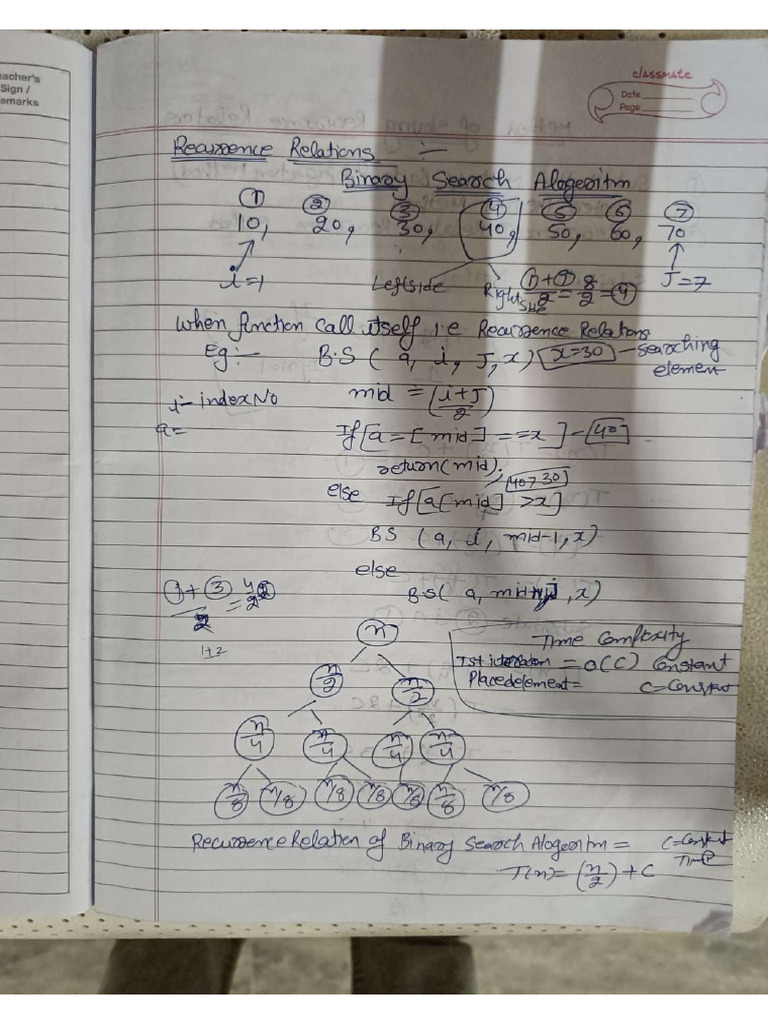 eacher's
Sign /
emarks
classmate
Date
Page
Recurrence Relations :-
Binary Search Alogeritm
① ② ③ ④ ⑤ ⑥ ⑦
10, 20, 30, 40, 50, 60, 70
i=1 Leftside Right Side ①+⑦/2 = 8/2 = ④ J=7
When function call itself i.e Recurrence Relations
Eg :- B.S ( a, i, J, x) x=30 - searching
element
i- index No mid = (i+J/2)
a= If [a = [mid] == x ] - 40
return (mid);
40>30
else If [a[mid] > x]
BS (a, i, mid-1, x)
else
①+③/2 = 4/2 ② B.S( a, mid+1, J, x)
1+2
n
n/2 n/2
n/4 n/4 n/4 n/4
n/8 n/8 n/8 n/8 n/8 n/8 n/8
Time Complexity
1st iteration = O(C) Constant
Placedelement = C=Constant
Recurrence Relation of Binary Search Alogeritm = C=Constant
Time
T(n) = (n/2) + C